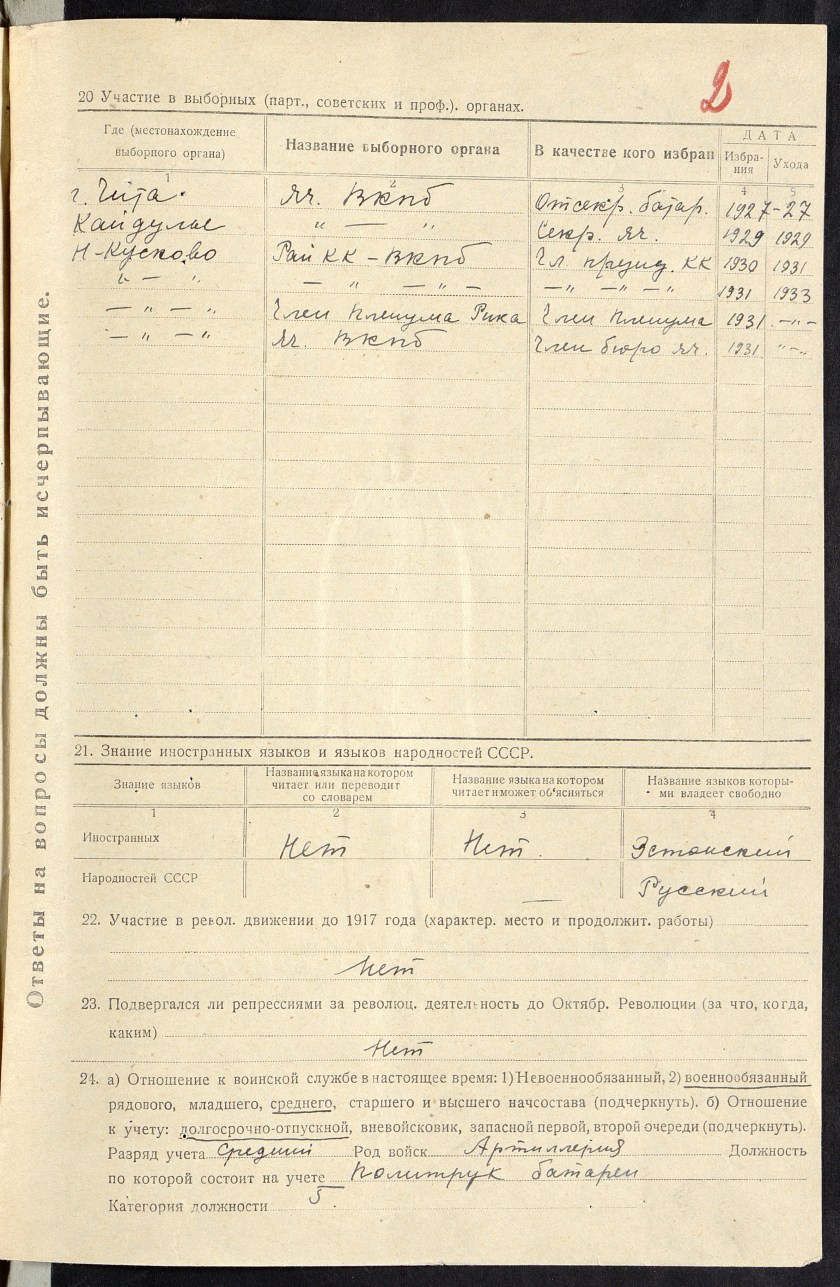 2
20 Участие в выборных (парт., советских и проф.). органах.
Где (местонахождение выборного органа) Название выборного органа В качестве кого избран ДАТА
Избрания Ухода
1 2 3 4 5
г. Чита. Яч. ВКПб Отсекр. батар. 1927-27
Кайдулье " — " Секр. яч. 1929 1929
Н-Кусково Рай КК - ВКПб Чл. презид. КК 1930 1931
" — " — " — " — — " — " — " 1931 1933
— " — " Член пленума Рика Член пленума 1931 — " —
— " — " Яч. ВКПб Член бюро яч. 1931 " — "
Ответы на вопросы должны быть исчерпывающие.
21. Знание иностранных языков и языков народностей СССР.
Знание языков Название языка на котором читает или переводит со словарем Название языка на котором читает и может об'ясняться Название языков которыми владеет свободно
1 2 3 4
Иностранных Нет Нет. Эстонский
Народностей СССР — Русский
22. Участие в револ. движении до 1917 года (характер. место и продолжит. работы)
Нет
23. Подвергался ли репрессиями за революц. деятельность до Октябр. Революции (за что, когда,
каким)
Нет
24. а) Отношение к воинской службе в настоящее время: 1) Невоеннообязанный, 2) военнообязанный
рядового, младшего, среднего, старшего и высшего начсостава (подчеркнуть). б) Отношение
к учету: долгосрочно-отпускной, вневойсковик, запасной первой, второй очереди (подчеркнуть).
Разряд учета средний Род войск Артиллерия Должность
по которой состоит на учете Политрук батареи
Категория должности 5